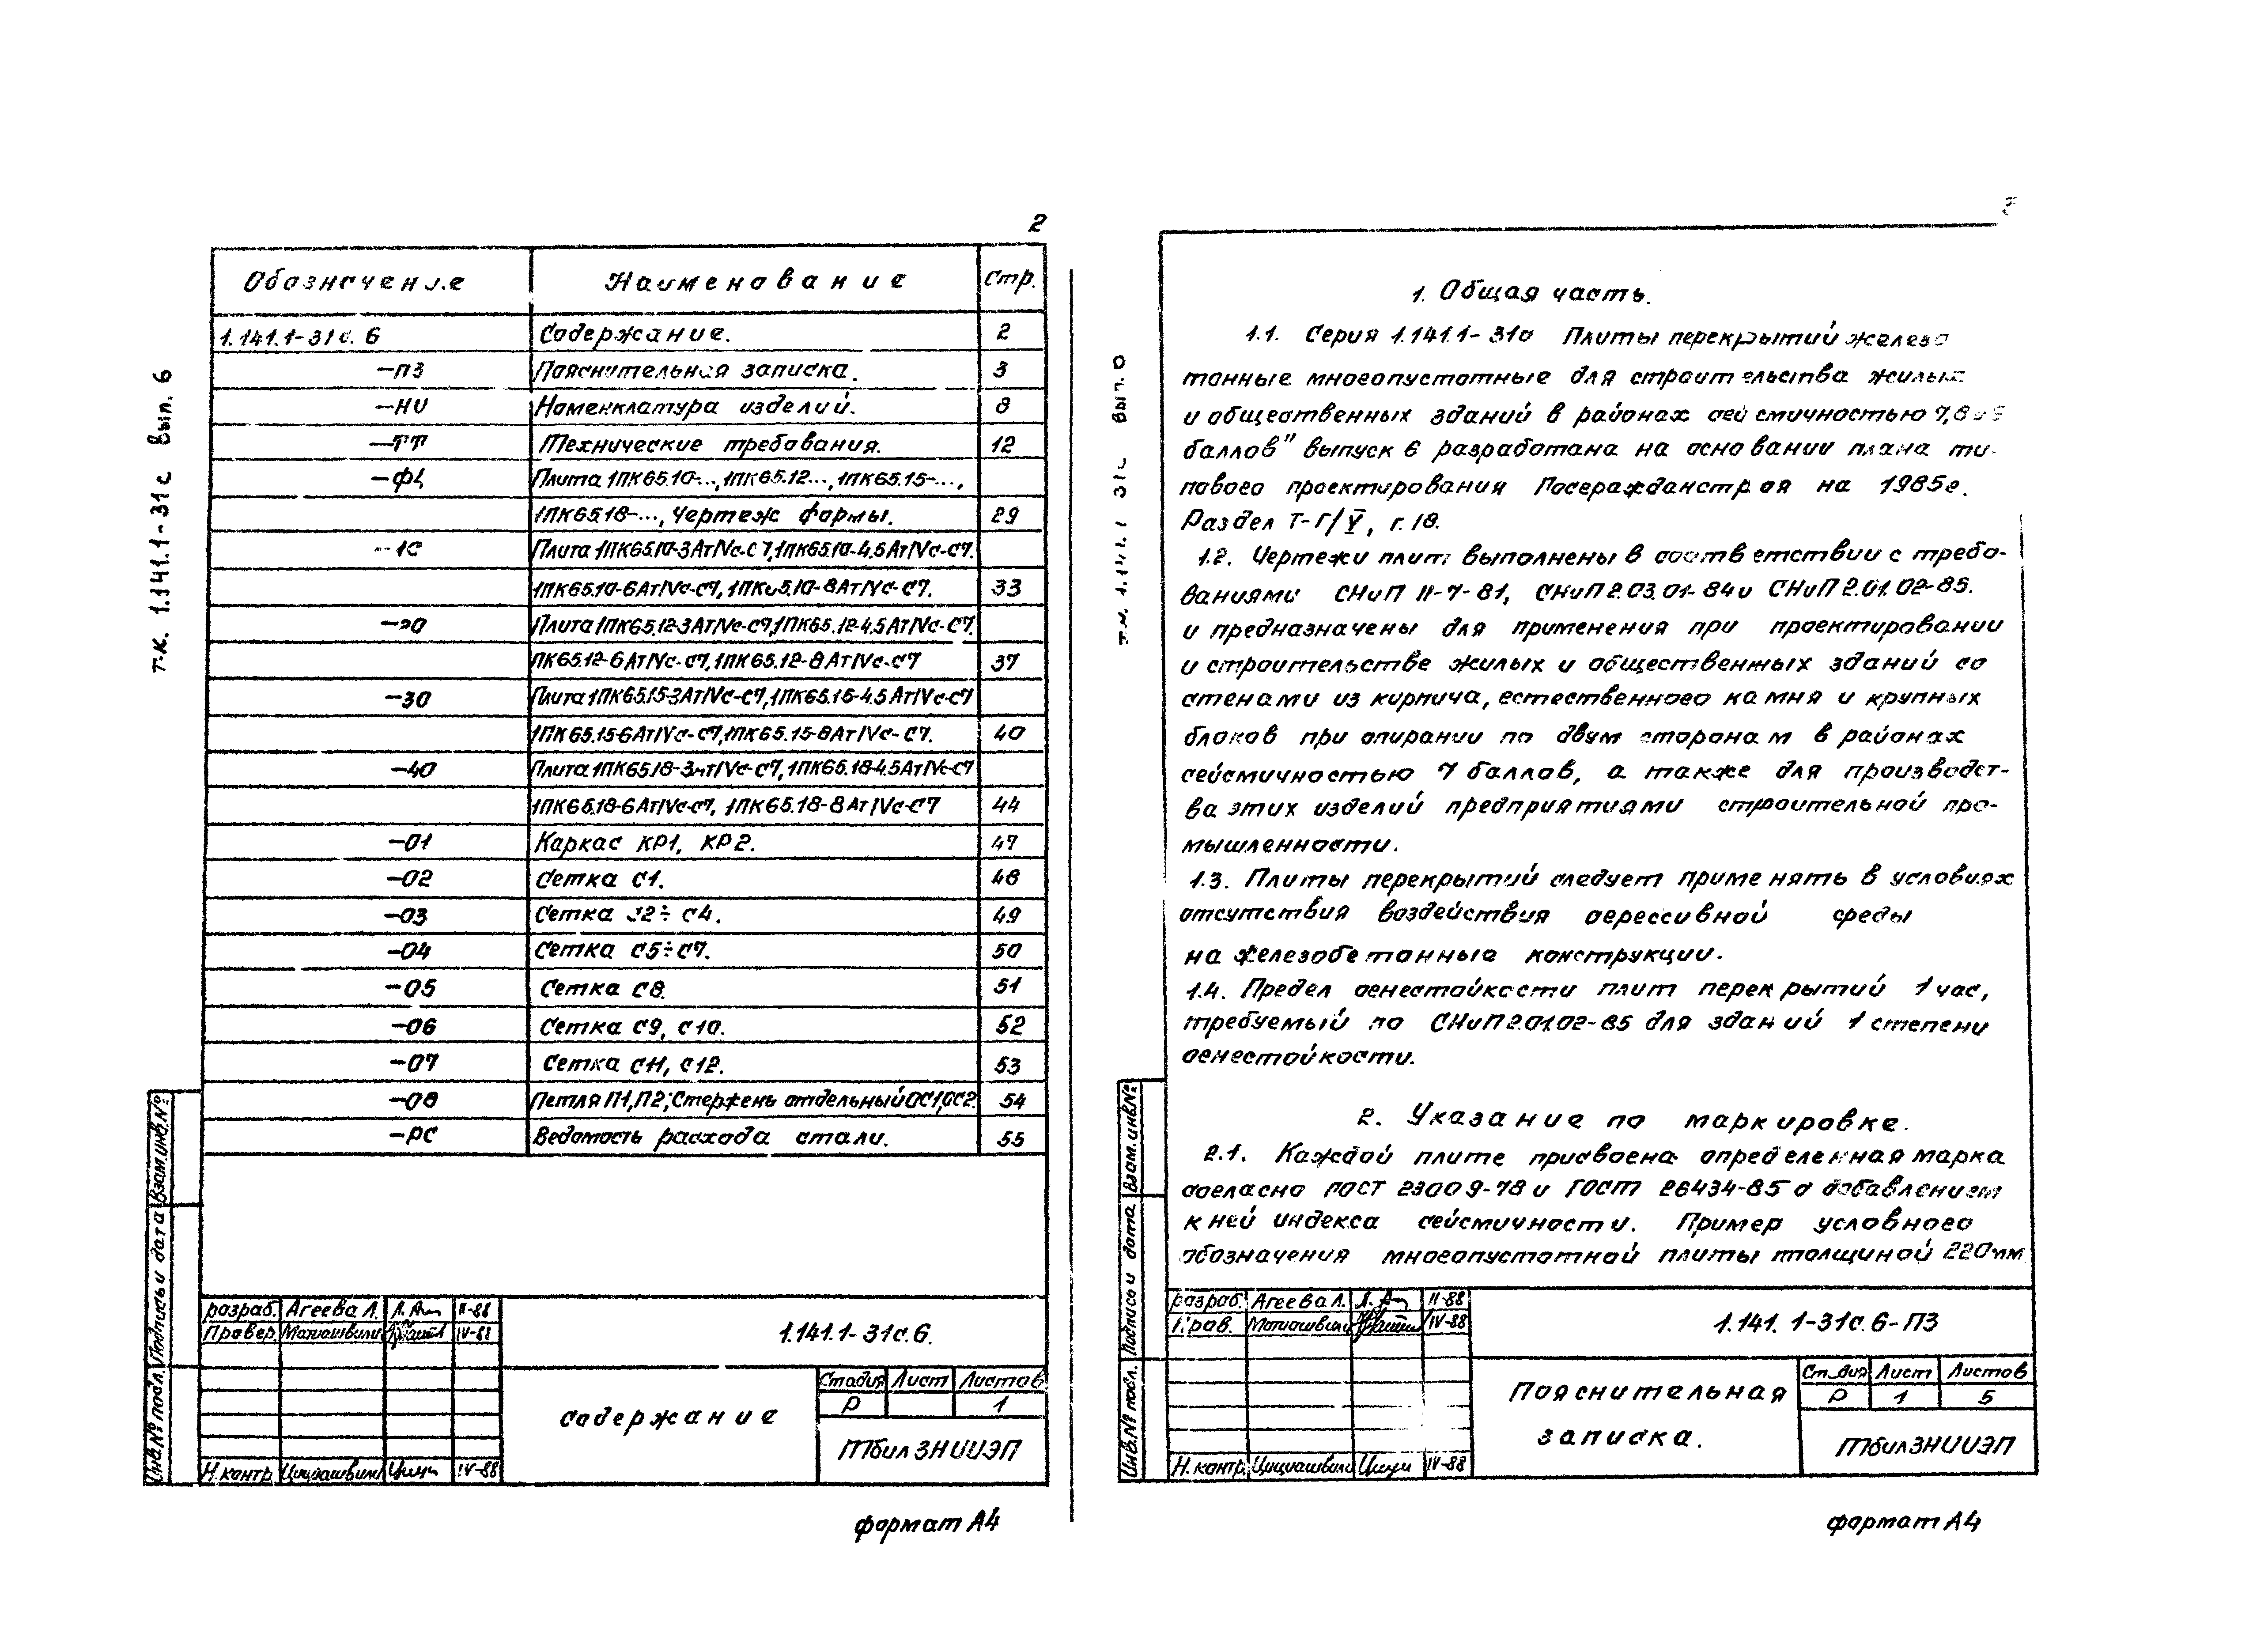 2
т.к. 1.141.1-31с вып. 6
Обозначение Наименование Стр.
1.141.1-31с. 6 Содержание. 2
-ПЗ Пояснительная записка. 3
-НИ Номенклатура изделий. 8
-ТТ Технические требования. 12
-ФЧ Плита 1ПК65.10-..., 1ПК65.12..., 1ПК65.15-...,
1ПК65.18-..., Чертеж формы. 29
-10 Плита 1ПК65.10-3АтIVс-С7, 1ПК65.10-4,5АтIVс-С7.
1ПК65.10-6АтIVс-С7, 1ПК65.10-8АтIVс-С7. 33
-20 Плита 1ПК65.12-3АтIVс-С7, 1ПК65.12-4,5АтIVс-С7.
ПК65.12-6АтIVс-С7, 1ПК65.12-8АтIVс-С7 37
-30 Плита 1ПК65.15-3АтIVс-С7, 1ПК65.15-4.5АтIVс-С7
1ПК65.15-6АтIVс-С7, 1ПК65.15-8АтIVс-С7. 40
-40 Плита 1ПК65.18-3АтIVс-С7, 1ПК65.18-4.5АтIVс-С7
1ПК65.18-6АтIVс-С7, 1ПК65.18-8АтIVс-С7 44
-01 Каркас КР1, КР2. 47
-02 Сетка С1. 48
-03 Сетка С2÷С4. 49
-04 Сетка С5÷С7. 50
-05 Сетка С8. 51
-06 Сетка С9, С10. 52
-07 Сетка С11, С12. 53
-08 Петля П1, П2; Стержень отдельный ОС1, ОС2. 54
-РС Ведомость расхода стали. 55
Инв.№ подл. Подпись и дата Взам.инв.№
разраб. Агеева Л. II-88
Провер. Матиашвили IV-88
1.141.1-31с.6.
содержание
Стадия Лист Листов
Р 1
ТбилЗНИИЭП
Н.контр. Цициашвили IV-88
формат А4
т.к. 1.141.1 31с вып. 0
1. Общая часть.
1.1. Серия 1.141.1-31с Плиты перекрытий железо
тонные многопустотные для строительства жилых
и общественных зданий в районах сейсмичностью 7,8 и 9
баллов" выпуск 6 разработана на основании плана ти-
пового проектирования Госгражданстроя на 1985г.
Раздел Т-Г/V, г.18.
1.2. Чертежи плит выполнены в соответствии с требо-
ваниями СНиП II-7-81, СНиП 2.03.01-84 и СНиП 2.01.02-85.
и предназначены для применения при проектировании
и строительстве жилых и общественных зданий со
стенами из кирпича, естественного камня и крупных
блоков при опирании по двум сторонам в районах
сейсмичностью 7 баллов, а также для производст-
ва этих изделий предприятиями строительной про-
мышленности.
1.3. Плиты перекрытий следует применять в условиях
отсутствия воздействия агрессивной среды
на железобетонные конструкции.
1.4. Предел огнестойкости плит перекрытий 1 час,
требуемый по СНиП 2.01.02-85 для зданий 1 степени
огнестойкости.
2. Указание по маркировке.
2.1. Каждой плите присвоена определенная марка
согласно ГОСТ 23009-78 и ГОСТ 26434-85 с добавлением
к ней индекса сейсмичности. Пример условного
обозначения многопустотной плиты толщиной 220мм
Инв.№ подл. Подпись и дата Взам.инв№
разраб. Агеева Л. II-88
Пров. Матиашвили IV-88
1.141.1-31с.6-ПЗ
Пояснительная
записка.
Стадия Лист Листов
Р 1 5
ТбилЗНИИЭП
Н.контр. Цициашвили IV-88
формат А4